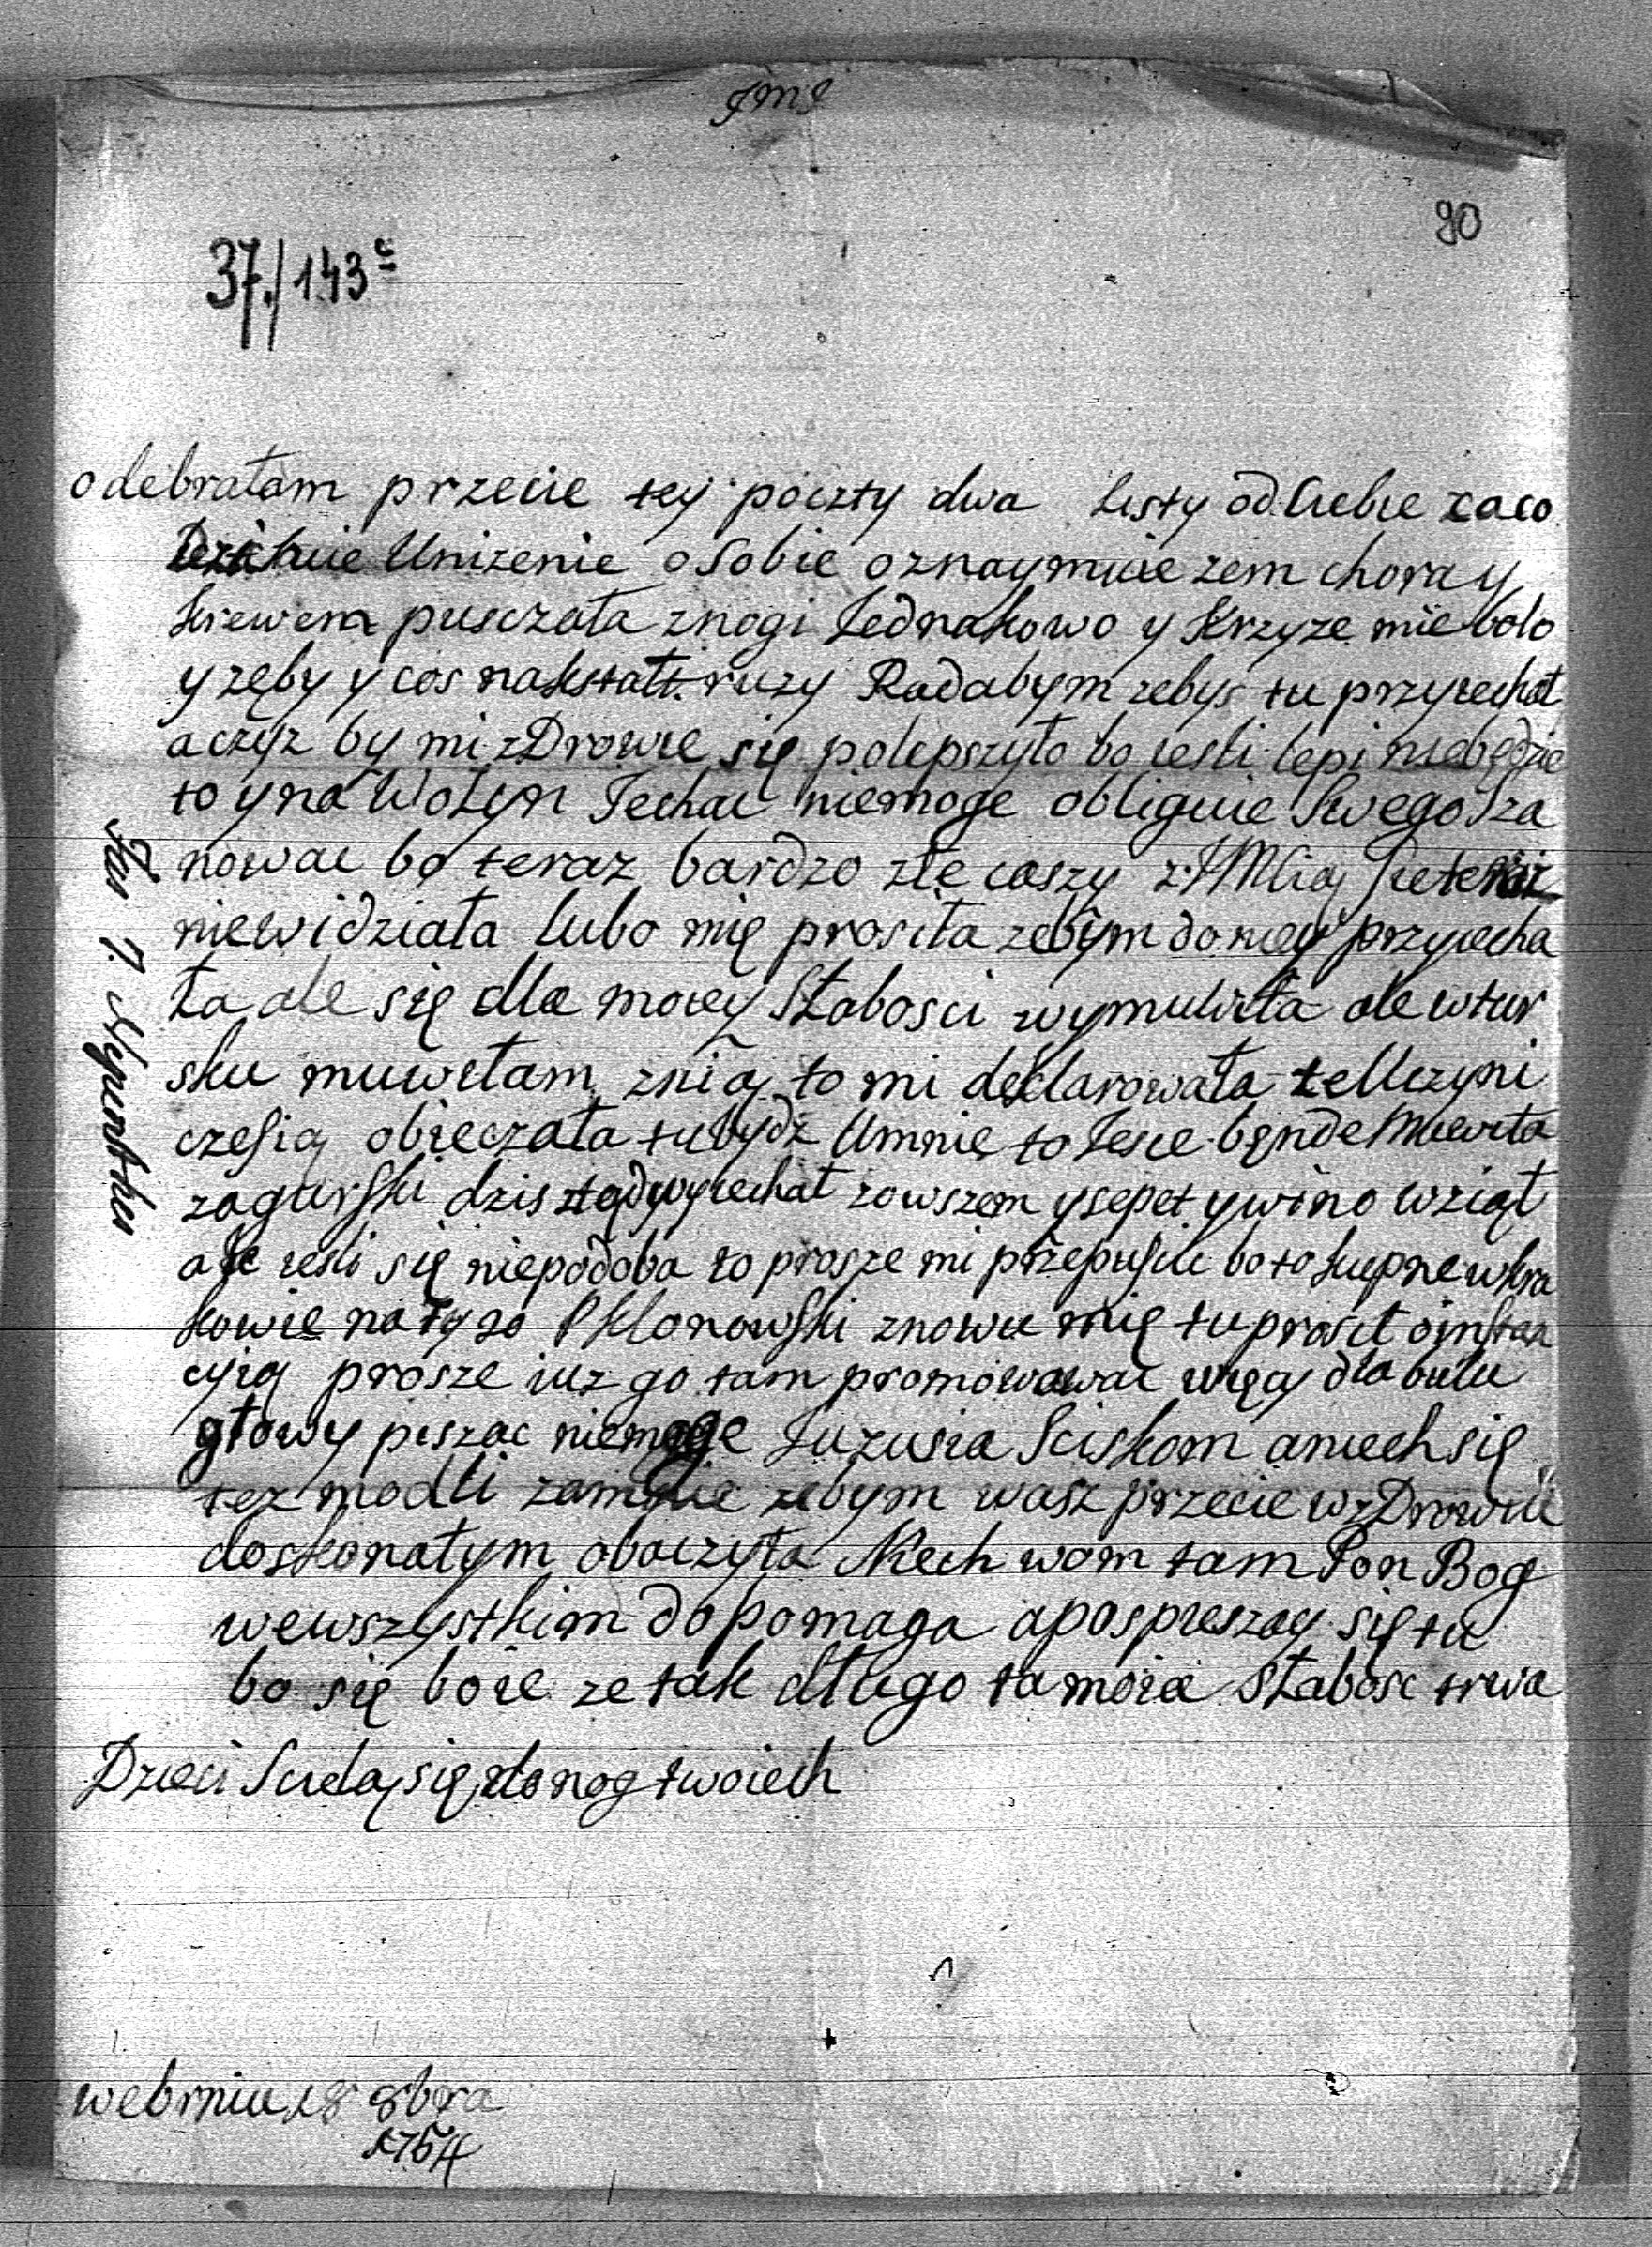 JMJ
90
37./143 c
odebrałam przecie tey poczty dwa Listy od Ciebie zaco
Dziekuie Unizenie o Sobie oznaymuie zem chora y
krewem pusczała znogi Jednakowo y Krzyze mie bolo
y zęby y cos nakstałt ruzy Radabym zebys tu przyiechał
aczyz by mi zDrowie się polepszyło bo iesli lepi niebędzie
to yna Wołyn Jechac niemoge obliguie Swego Sza
nowac bo teraz bardzo złe czasy z JMCią
niewidziała lubo mię prosiła zebym do niey przyiecha
ła ale się dla moiey Słabosci wymuwiła ale wtur
sku muwiłam znią to mi deklarowała ze Uczyni
czesią obieczała tu bydz Umnie to Jesce bęnde Muwiła
zagurski dzis ztąd wyiechał zowszem y sepet y wino wziął
ale iesli się niepodoba to prosze mi przepuscic bo to kupne wkra
kowie natygo P Klonowski znowu mię tu prosił oinstan
cyią prosze iuz go tam promowowac więcy dla bulu
głowy pisac niemoge Juzusia Sciskom aniech się
tez modli zamnie zebym wasz przecie wzDrowiu
doskonałym obaczyła Niech wom tam Pon Bog
wewszystkim dopomaga apospieszay się tu
bo się boie ze tak długo ta moia Słabosc trwa
Dzieci Scielą się do nog twoiech
webrniu 18 8bra
1754